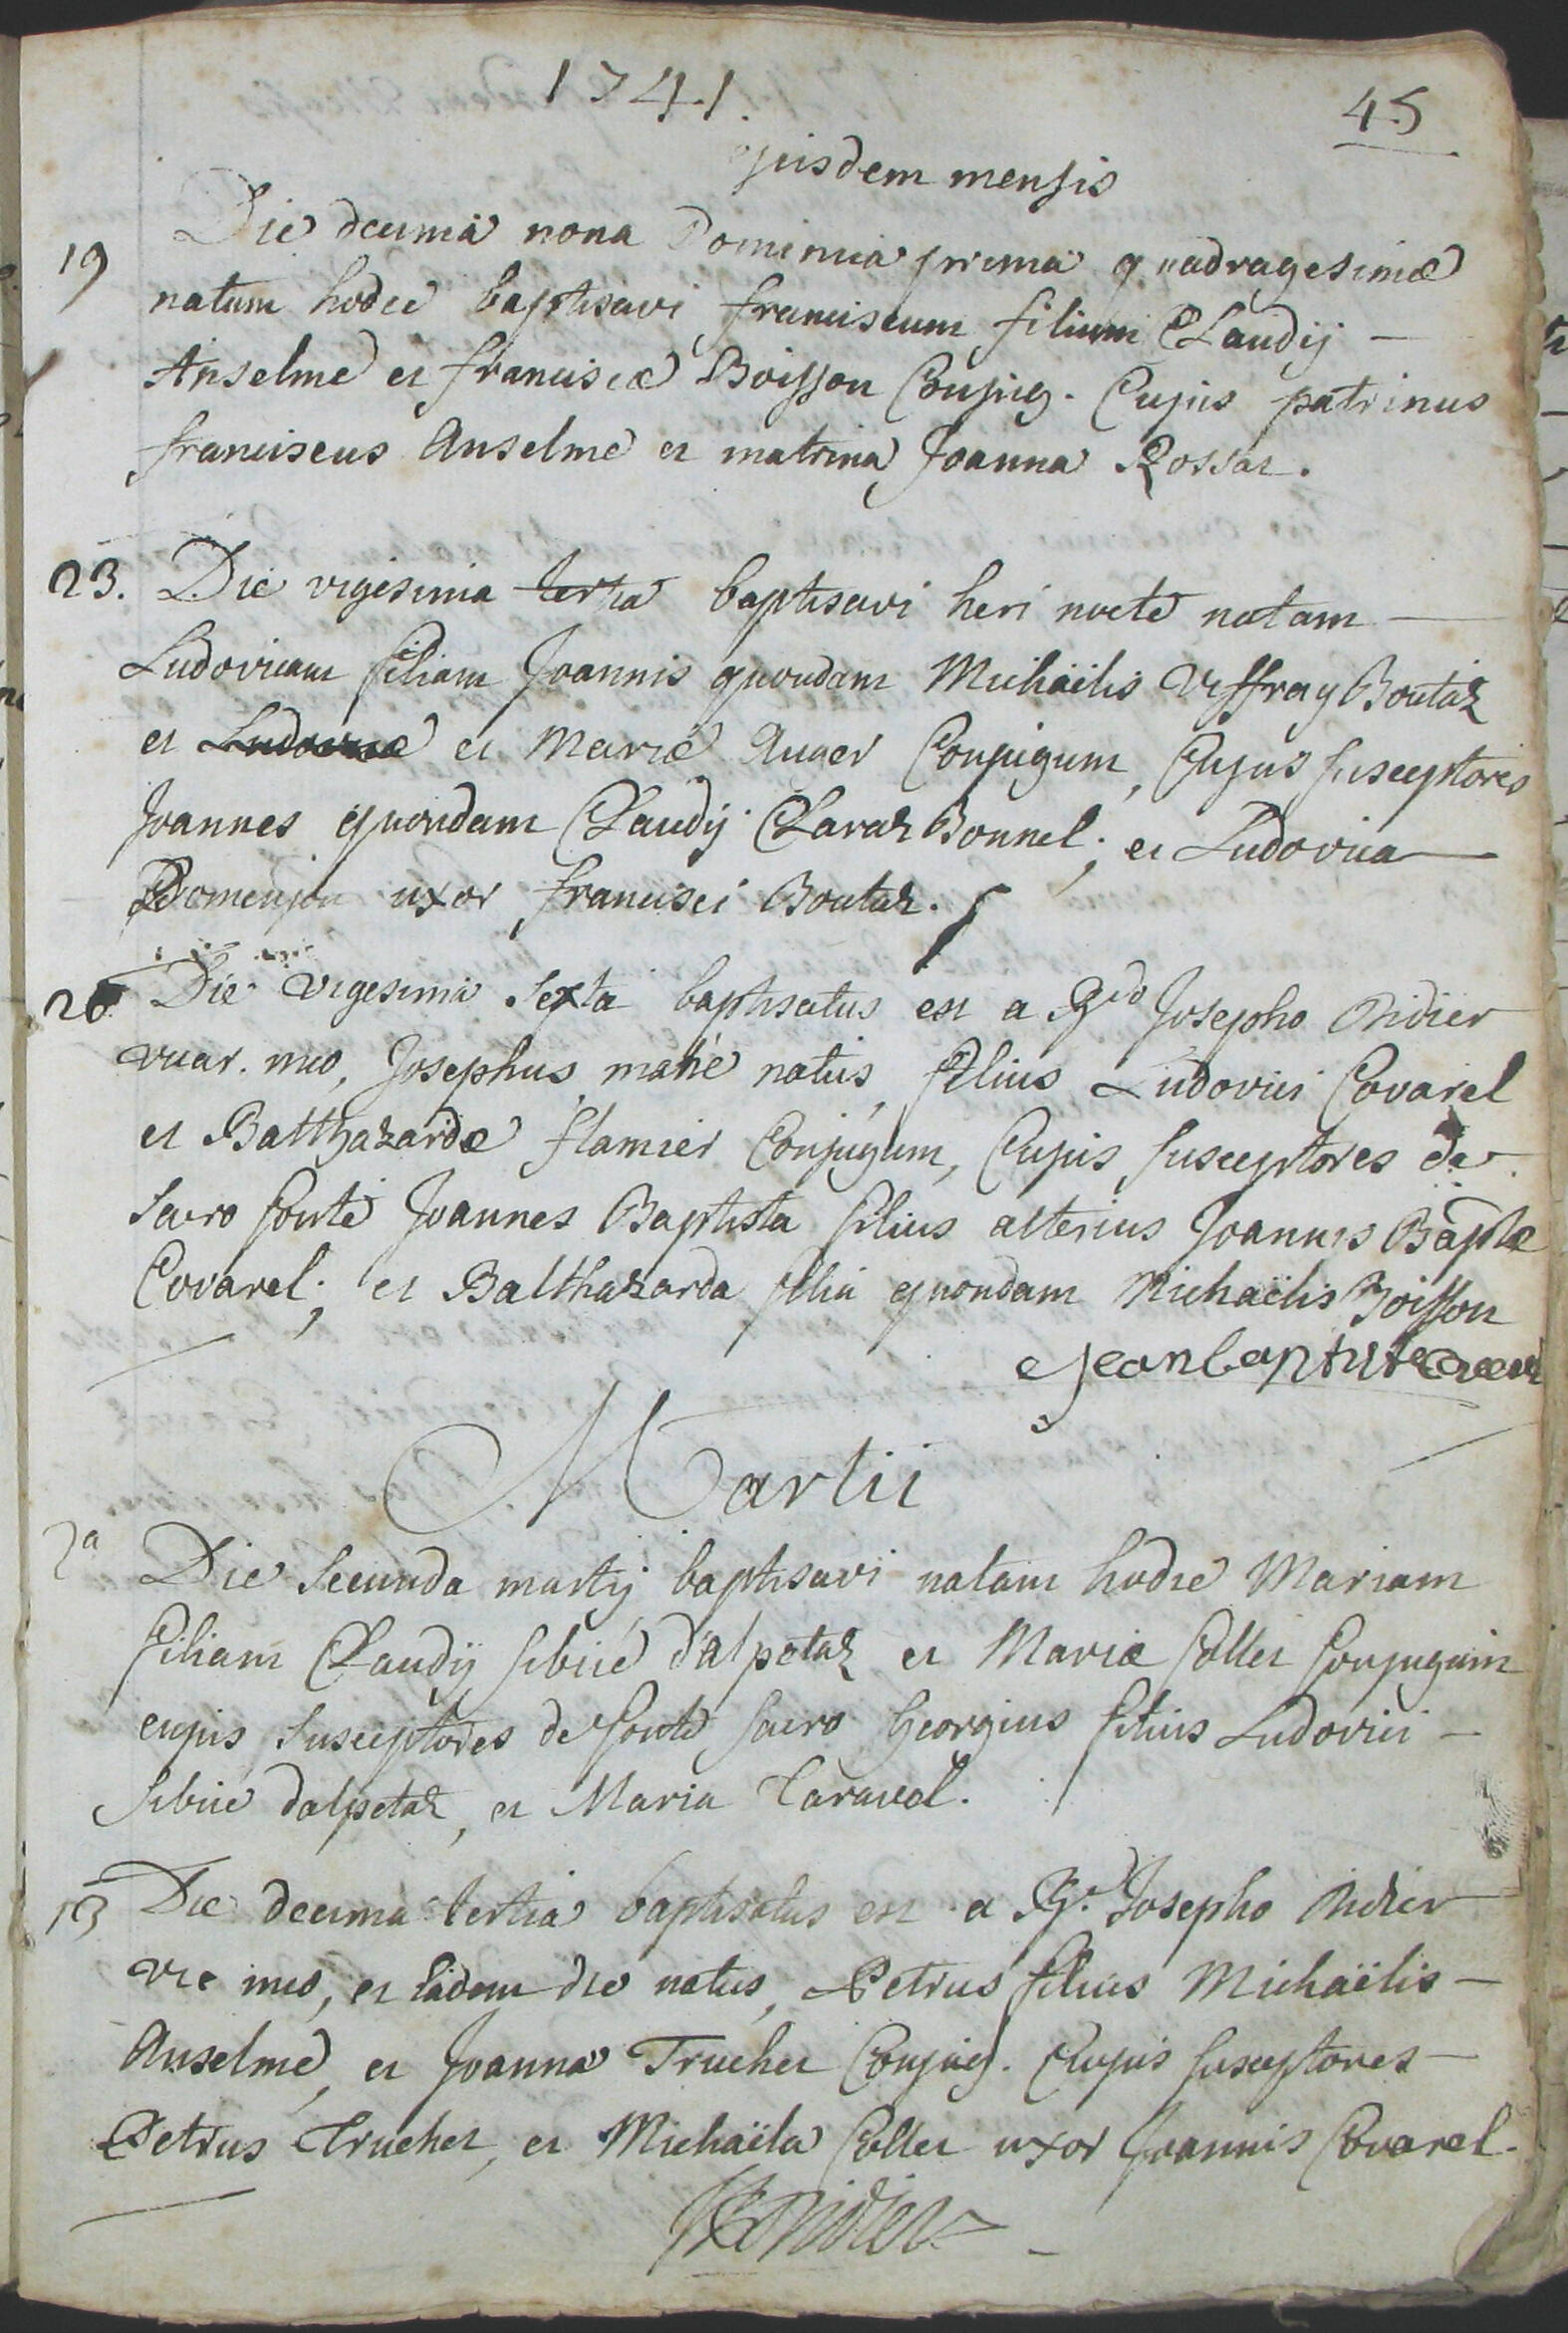 1741.
45
ejusdem mensis
19 Die decima nona Dominica prima quadragesimæ
natum hodie baptisavi franciscum filium Claudij -
Anselme et franciscæ Boisson Conjug. Cujus patrinus
franciscus Anselme et matrina Joanna Rossat.
23. Die vigesima tertia baptisavi heri nocte natam -
Ludovicam filiam Joannis quondam Michaëlis Vffray Boutaz
et Ludovicæ et Mariæ Conjugum, Cujus susceptores
Joannes quondam Claudij Claraz Bonnel; et Ludovica -
Domenjon uxor francisci Boutaz.
26 Die vigesima sexta baptisatus est a Rdo Josepho Didier
vicar. meo, Josephus mane natus, filius Ludovici Covarel
et Balthazardæ flamier Conjugum, Cujus susceptores de
sacro fonte Joannes Baptista filius alterius Joannis Baptæ
Covarel; et Balthazarda filia quondam Michaëlis Boisson
Jean baptiste
Martii
2a Die secunda martij baptisavi natam hodie Mariam
filiam Claudij sibué d'alpetaz et Mariæ Collet Conjugum
cujus susceptores de fonte sacro Georgius filius Ludovici -
sibué dalpetaz, et Maria Taravel.
13 Die decima tertia baptisatus est a Rdo Josepho Didier
vic meo, et eadem die natus, Petrus filius Michaëlis -
Anselme, et Joanna Truchet Conjug. Cujus susceptores -
Petrus Truchet, et Michaëla Collet uxor Joannis Covarel.
Didier